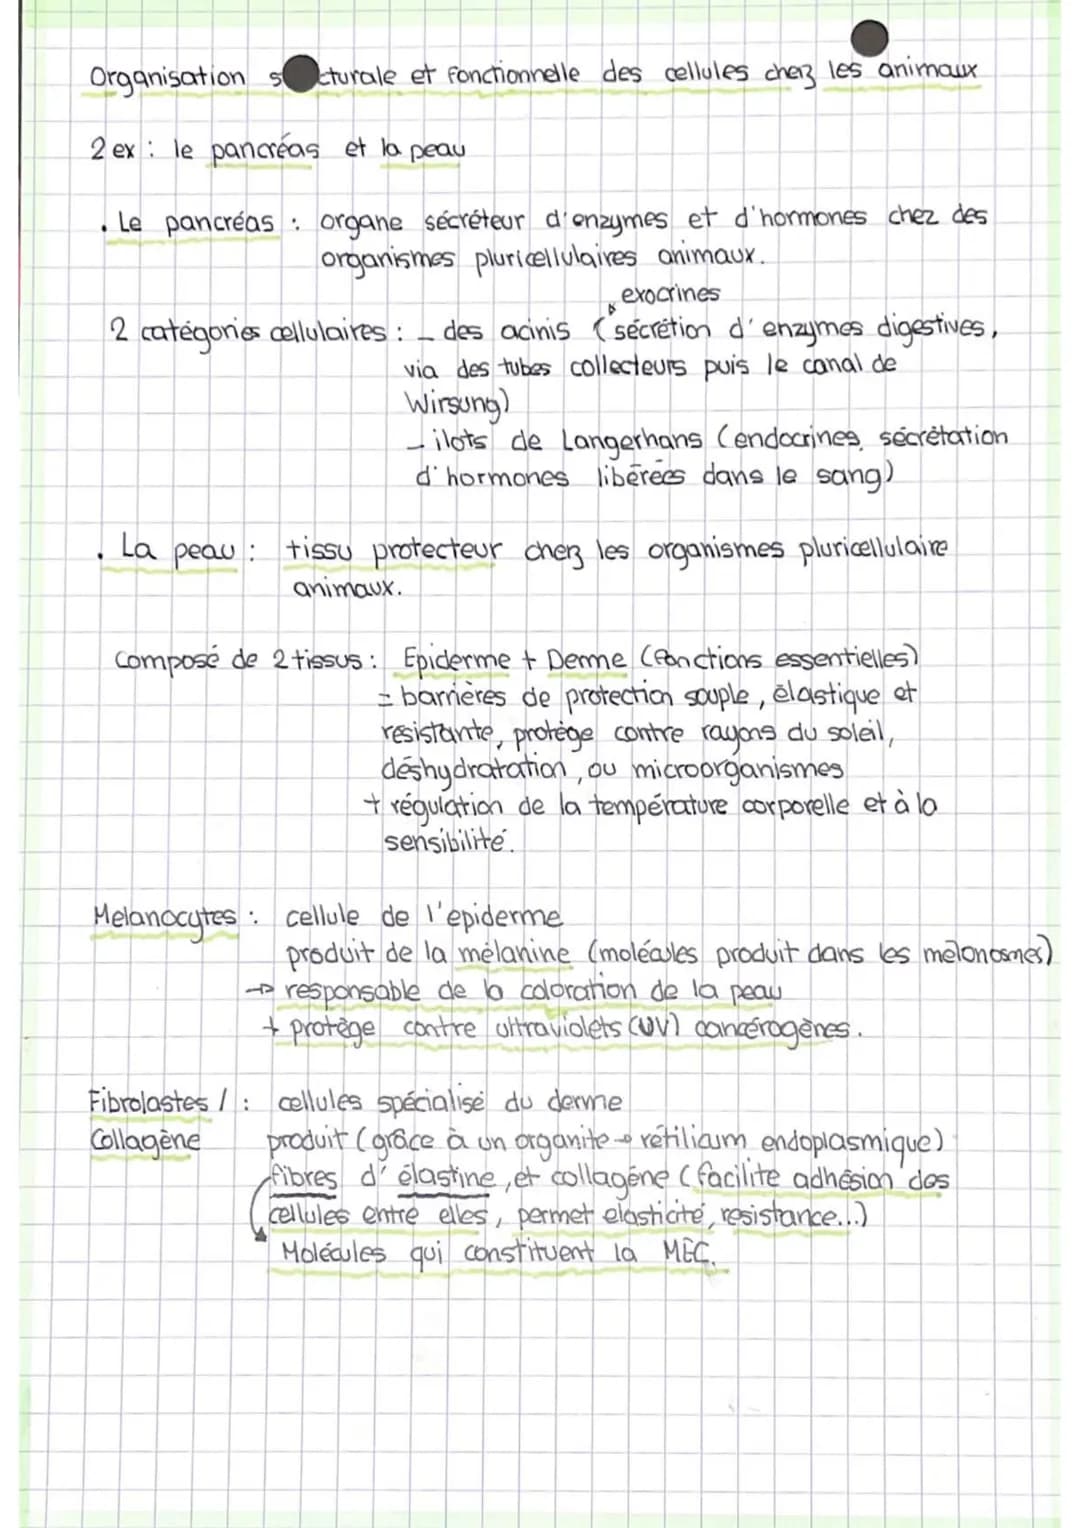 Organisation s cturale et fonctionnelle des cellules chez les animaux
2 ex : le pancréas et la peau
• Le pancréas : organe sécréteur d'enzymes et d'hormones chez des
organismes pluricellulaires animaux.
exocrines
2 catégories cellulaires : - des acinis (sécrétion d'enzymes digestives,
via des tubes collecteurs puis le canal de
Wirsung)
- ilots de Langerhans (endocrines, sécrétation
d'hormones libérées dans le sang)
• La peau : tissu protecteur chez les organismes pluricellulaire
animaux.
Composé de 2 tissus : Epiderme + Derme (fonctions essentielles)
= barrières de protection souple, élastique et
résistante, protège contre rayons du soleil,
déshydratation, ou microorganismes
+ régulation de la température corporelle et à la
sensibilité.
Melanocytes : cellule de l'epiderme
produit de la mélanine (molécules produit dans les mélanosmes)
→ responsable de la coloration de la peau
+ protège contre ultraviolets (UV) cancérogènes.
Fibrolastes / : cellules spécialisé du derme
Collagène produit (grâce à un organite → rétilicum endoplasmique)
fibres d'élastine, et collagène (facilite adhésion des
cellules entre elles, permet elasticité, resistance...)
Molécules qui constituent la MEC.